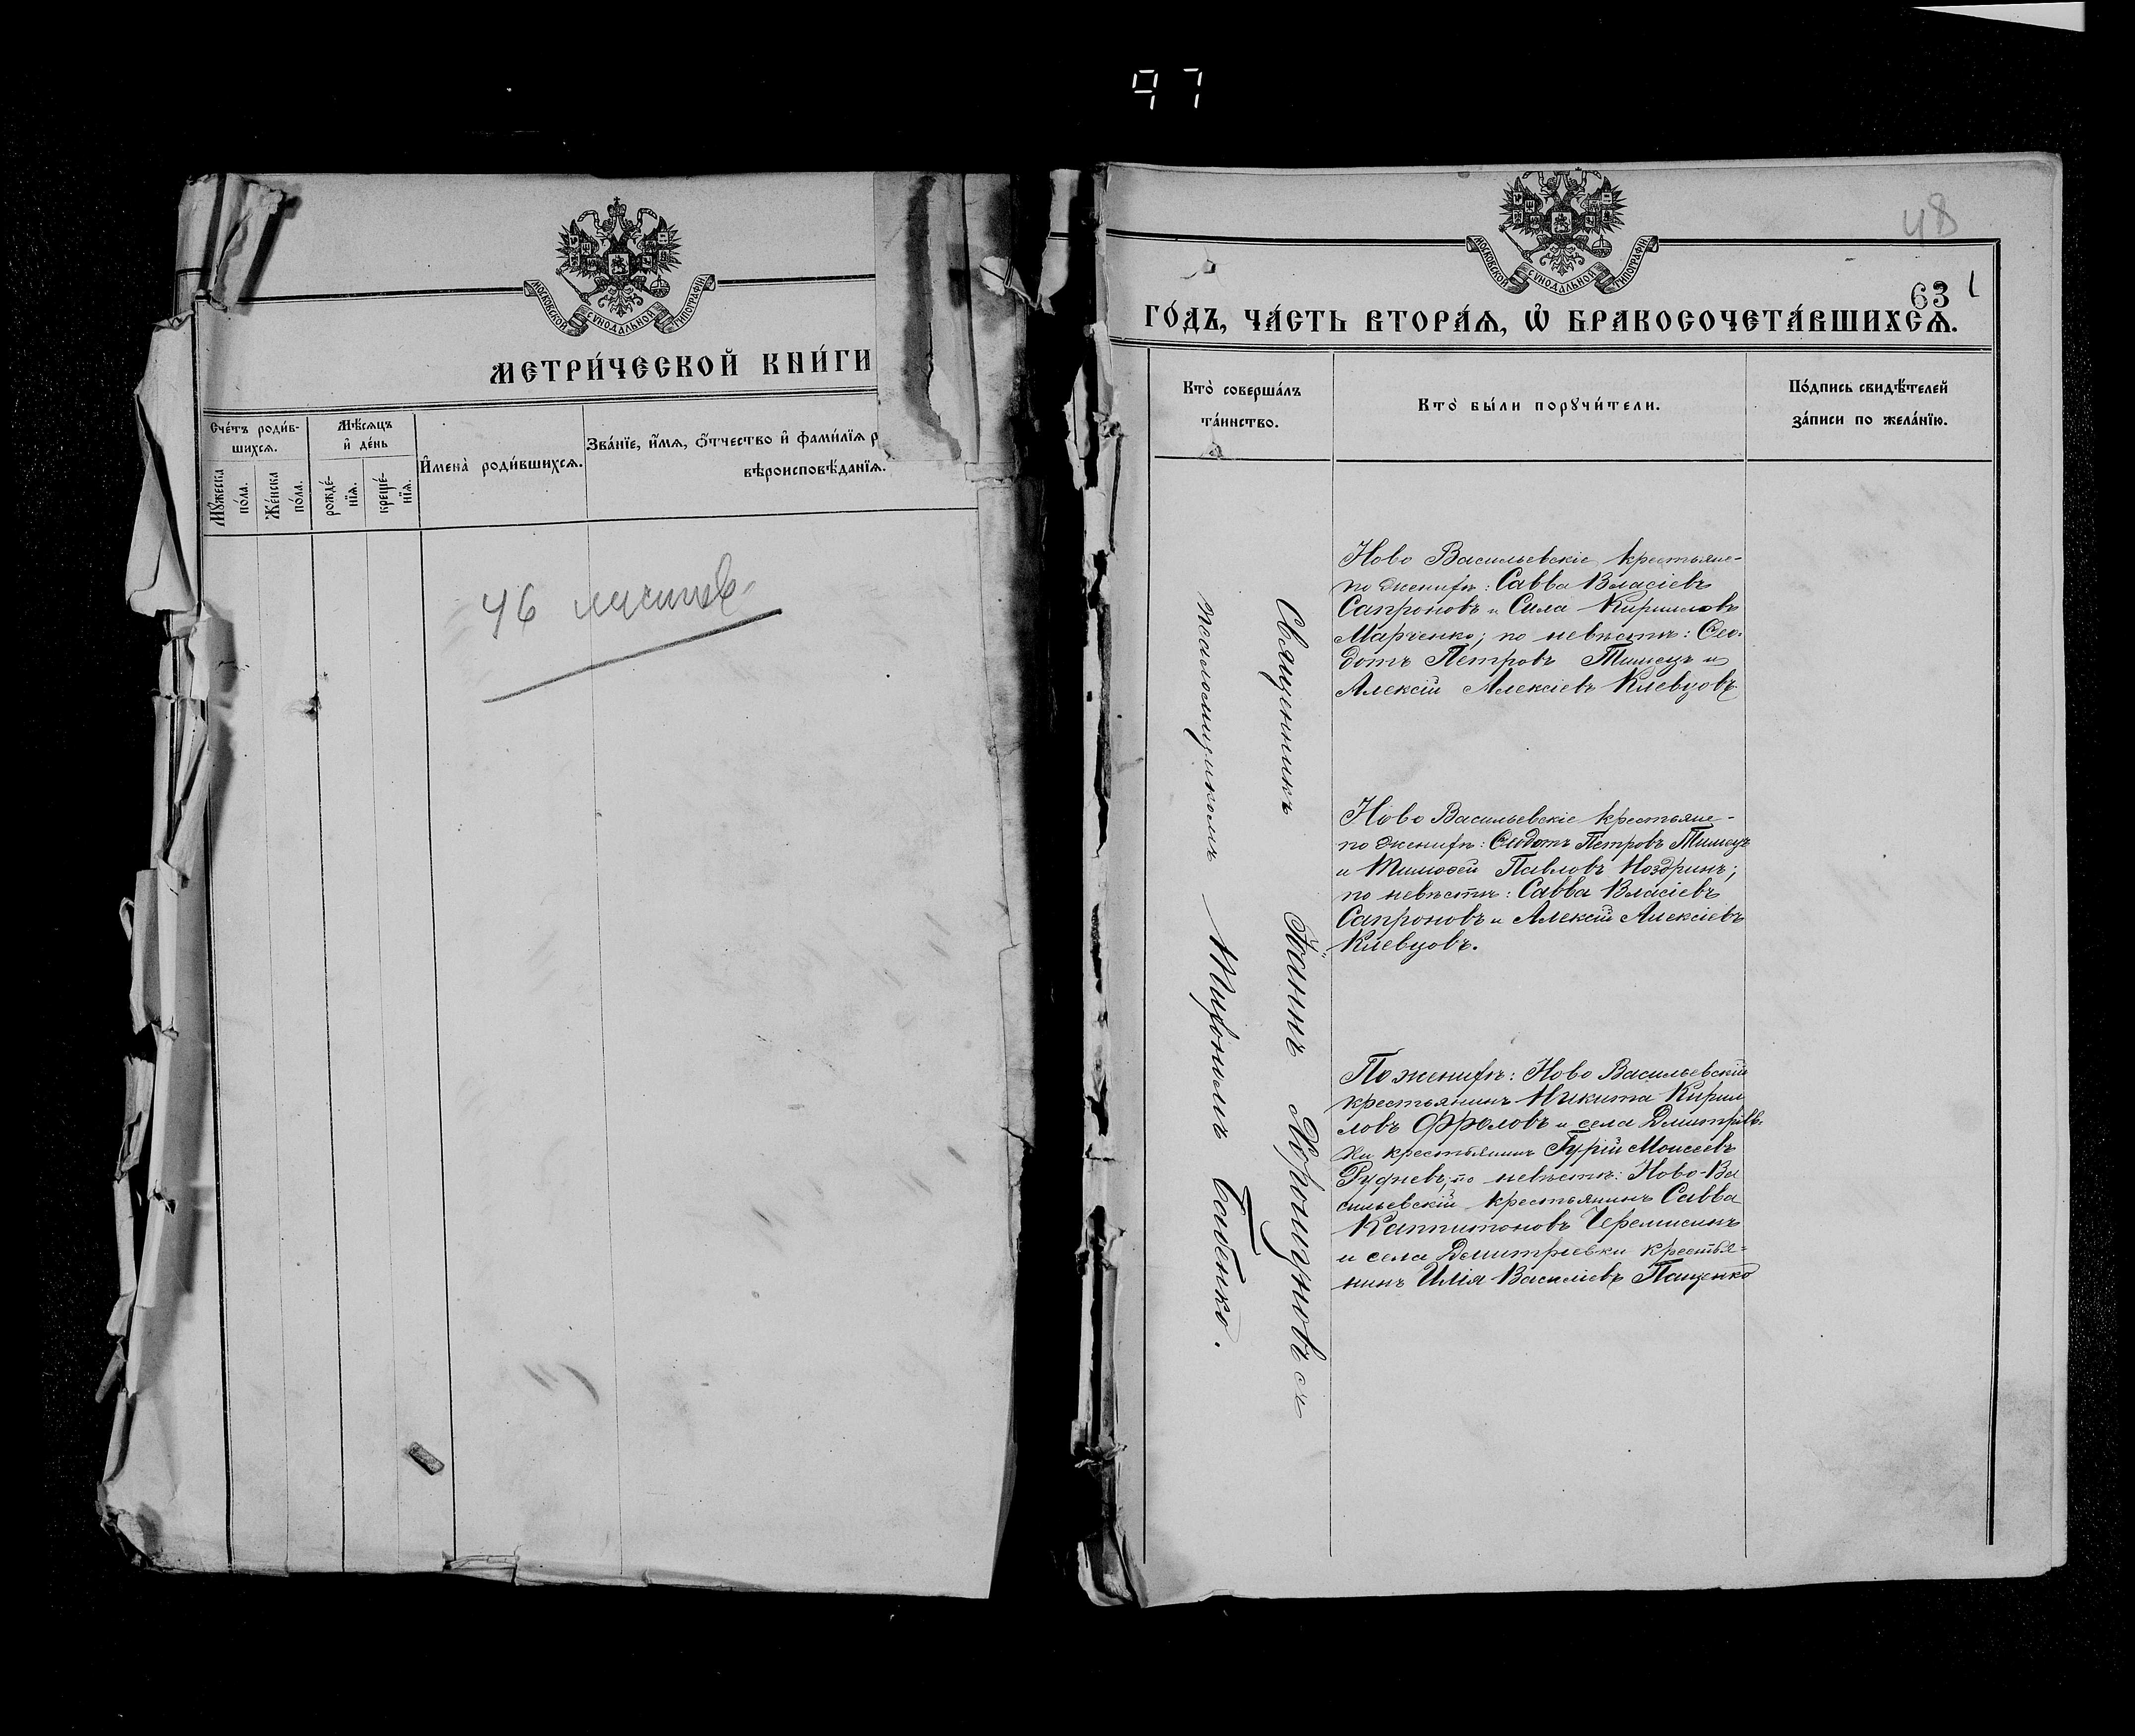 97
МОСКОВСКОЙ СУНОДАЛЬНОЙ ТИПОГРАФІИ
МЕТРИ́ЧЕСКОЙ КНИ́ГИ
Сче́тъ роди́в-
шихсѧ.
Мѣ́сѧцъ
и҆ де́нь
И҆мена̀ роди́вшихсѧ.
Зва́нїе, и҆́мѧ, ѻ҆́тчество и҆ фами́лїѧ р
вѣроисповѣ́данїѧ.
Мꙋ́жеска
по́ла.
Же́нска
по́ла.
рожде́-
нїѧ.
креще́-
нїѧ.
46 листов
48
МОСКОВСКОЙ СУНОДАЛЬНОЙ ТИПОГРАФІИ
63
ГО́ДЪ, ЧА́СТЬ ВТОРА́Ѧ, Ѽ БРАКОСОЧЕТА́ВШИХСѦ.
Кто̀ соверша́лъ
та́инство.
Кто̀ бы́ли порꙋчи́тели.
По́дпись свидѣ́телей
за́писи по жела́нїю.
Священникъ Іоаннъ Хорошуновъ съ
псаломщикомъ Тихономъ Бабенко.
Ново Васильевскіе крестьяне-
по женихѣ: Савва Власіевъ
Сапроновъ и Сила Кирилловъ
Марченко; по невѣстѣ: Ѳео-
дотъ Петровъ Тимецъ и
Алексій Алексіевъ Клевцовъ
Ново Васильевскіе крестьяне-
по женихѣ: Ѳедотъ Петровъ Тимецъ
и Тимофей Павловъ Ноздринъ;
по невѣстѣ: Савва Власіевъ
Сапроновъ и Алексій Алексіевъ
Клевцовъ.
По женихѣ: Ново Васильевскій
крестьянинъ Никита Кирил
ловъ Фроловъ и села Дмитріев-
ки крестьянинъ Гурій Моисеевъ
Рудневъ, по невѣстѣ: Ново-Ва
сильевскій крестьянинъ Савва
Каппитоновъ Черемисинъ
и села Дмитриевки крестья-
нинъ Илія Василіевъ Пащенко